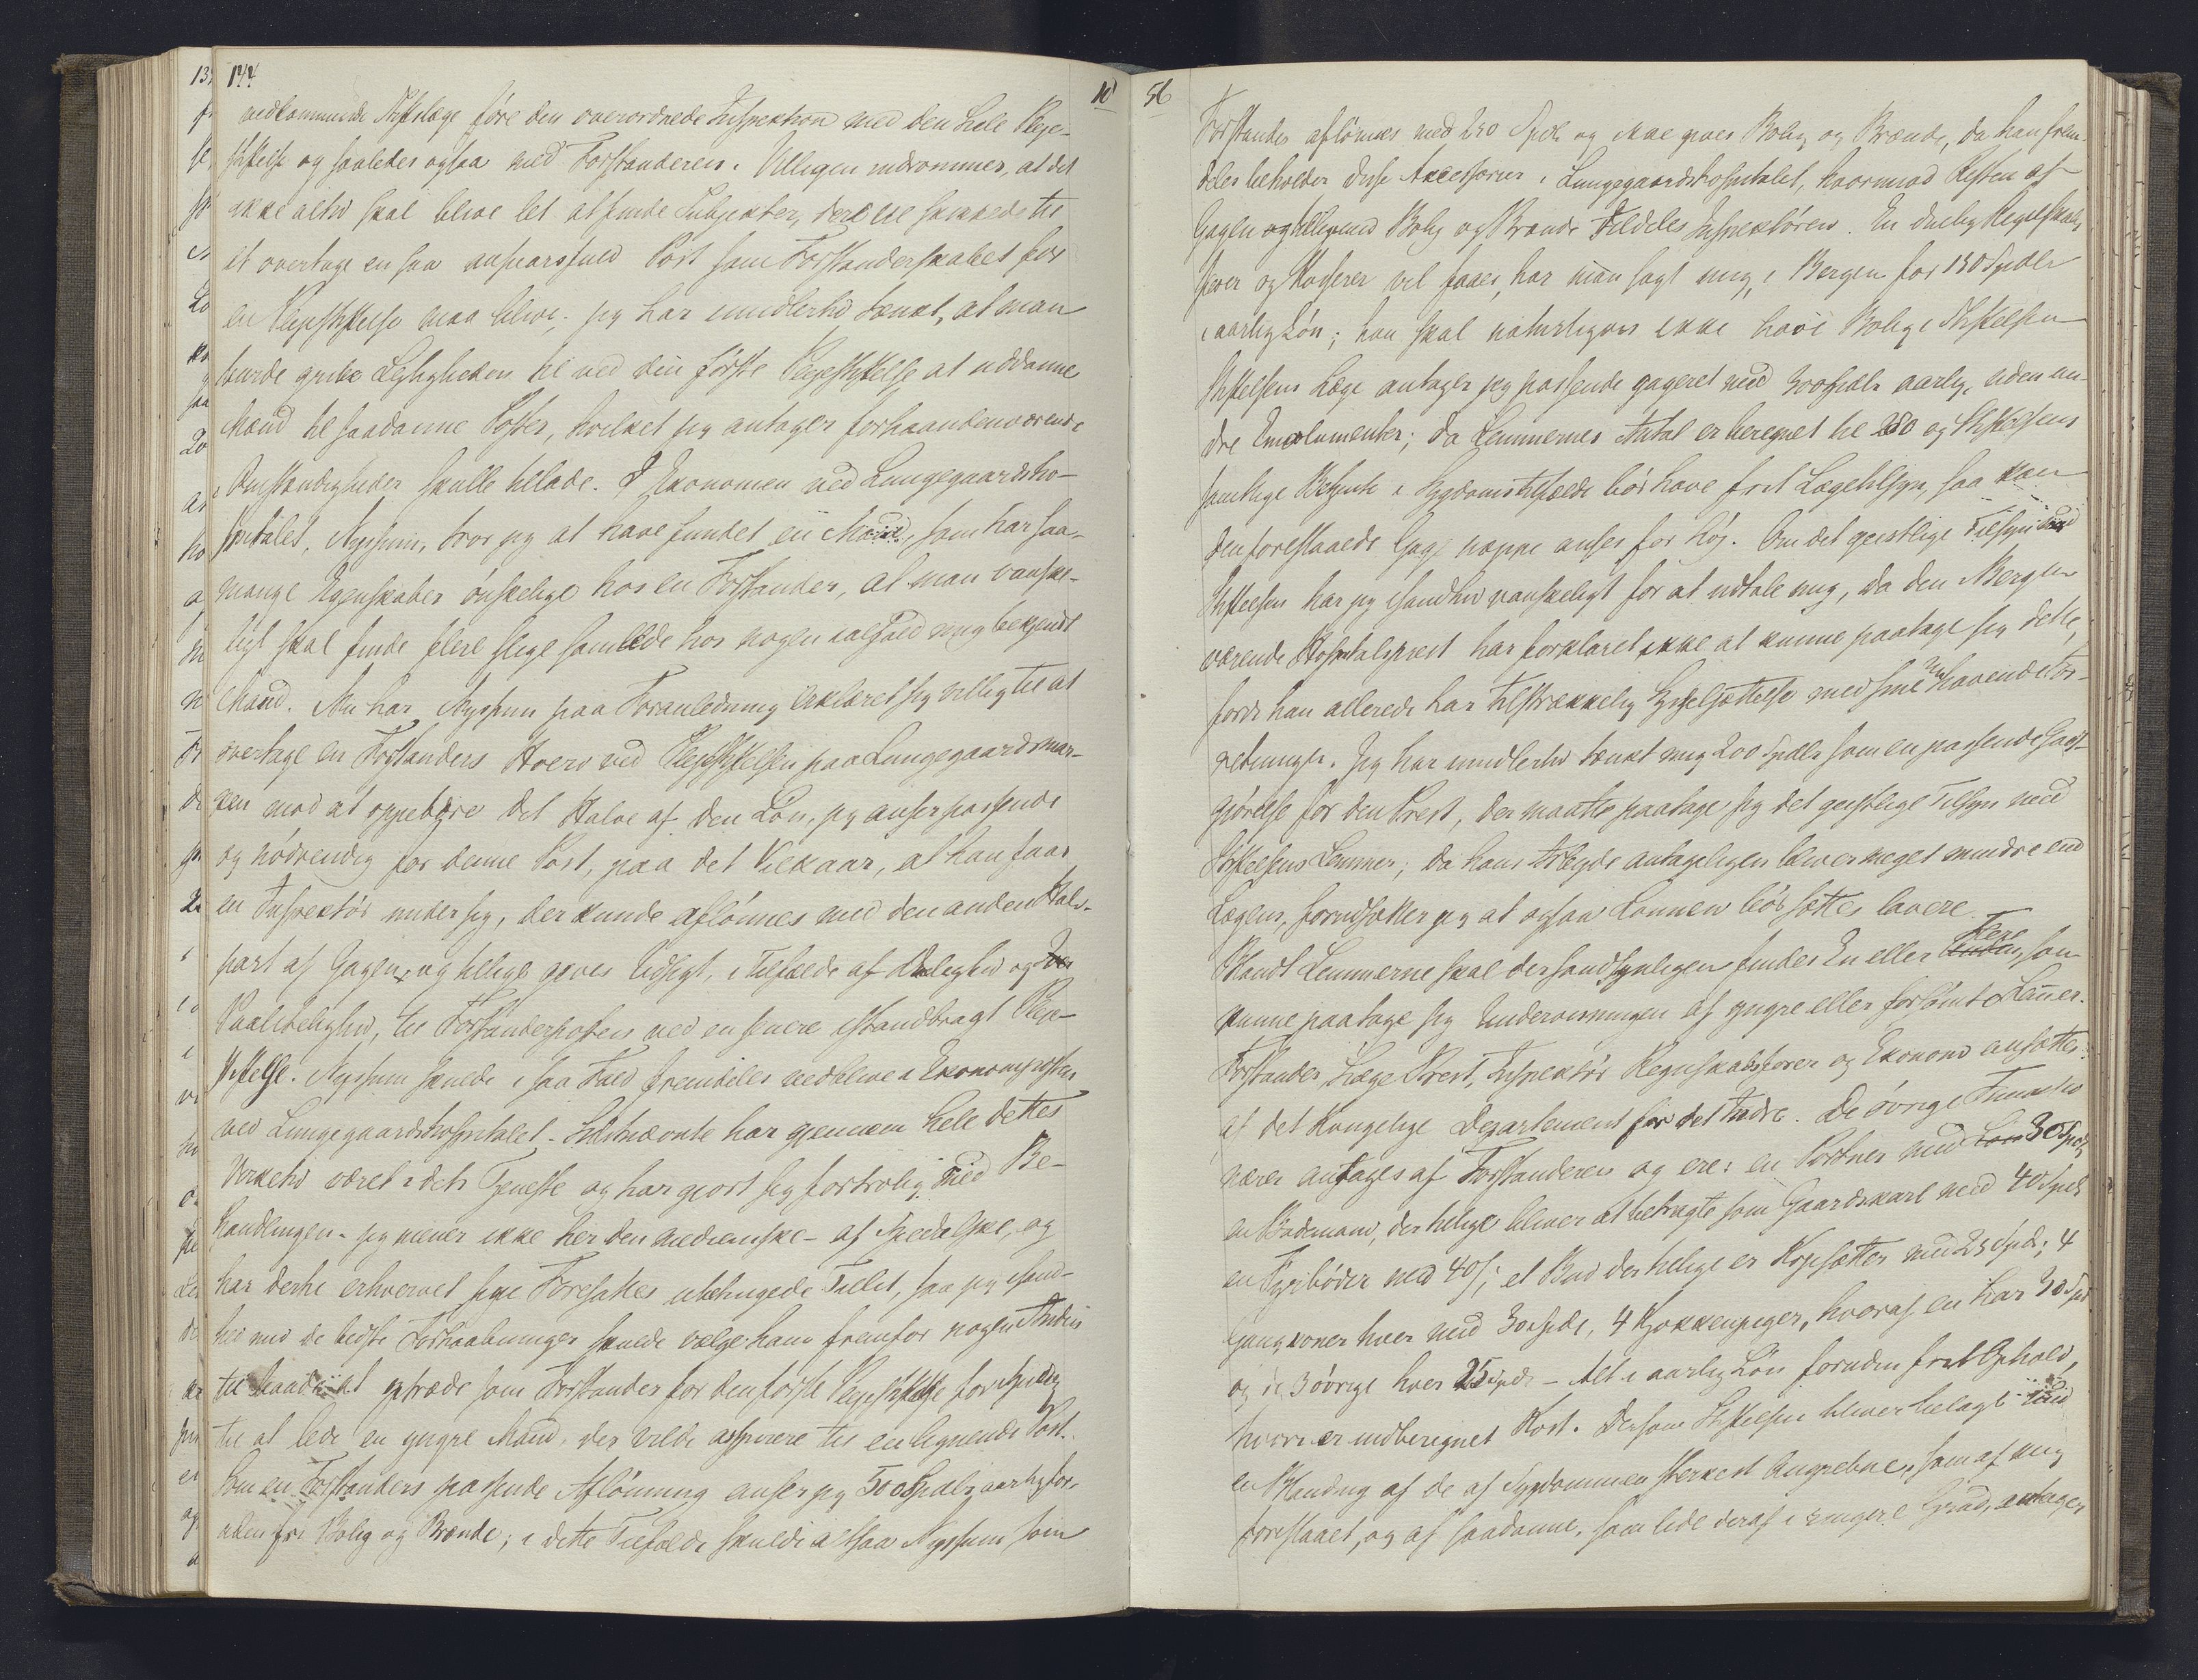 144
10
vedkommende Distriktslæge føre den overordnede Inspektion med den hele Pleje-
stiftelse og saaledes ogsaa med Forstanderen. Villigen indrømmes, at det
ikke altid skal blive let at finde Subjekter, der ere skikkede til
at overtage en saa ansvarsfuld Post som Forstanderskabet for
en Plejestiftelse maa blive; jeg har imidlertid tænkt, at man
burde gribe Lejligheden til ved den første Plejestiftelse at uddanne
Mænd til saadanne Poster, hvilket jeg antager forhaandenværende
Omstændigheder skulle tillade. I Ekonomen ved Lungegaardsho-
spitalet, Nyssum, tror jeg at have fundet en Mand, som har saa
mange Egenskaber ønskelige hos en Forstander, at man vanske-
ligt skal finde flere slige samlede hos nogen ialfald mig bekjendt
Mand. Nu har Nyssum paa Foranledning erklæret sig villig til at
overtage en Forstanders Hverv ved Plejestiftelsen paa Lungegaardsmar-
ken mod at oppebære det Halve af den Løn, jeg anser passende
og nødvendig for denne Post, paa det Vilkaar, at han faar
en Inspektør under sig, der kunde aflønnes med den anden Halv-
part af Gagen, og tillige gives Udsigt, i Tilfælde af Duelighed og
Paalidelighed, til Forstanderposten ved en senere istandbragt Pleje-
stiftelse. Nyssum skulde i saa Fald fremdeles vedblive i Ekonomposten
ved Lungegaardshospitalet. Selvsamme har gjennem hele dettes
Virketid været i dets Tjeneste og har gjort sig fortrolig med Be-
handlingen – jeg mener ikke her den medicinske – af Spedalske, og
har dertil erhvervet sine Foresattes ubetingede Tillid, saa jeg isand-
hed med de bedste Forhaabninger skulde vælge ham fremfor nogen Anden
til at optræde som Forstander for den første Plejestiftelse for Spedalske
til at lede en yngre Mand, der vilde aspirere til en lignende Post.
Som en Forstanders passende Aflønning anser jeg 500 Spdlr aarlig for-
uden fri Bolig og Brænde; i dette Tilfælde skulde altsaa Nyssum som
56
Forstander aflønnes med 250 Spdlr og ikke gives Bolig og Brænde, da han frem-
deles beholder disse Accessorier i Lungegaardshospitalet, hvorimod Resten af
Gagen og tilligemed Bolig og Brænde tildeles Inspektøren. En duelig Regnskabs-
fører og Kasserer vil faaes, har man sagt mig, i Bergen for 150 Spdlr
i aarlig Løn; han skal naturligvis ikke have Bolig i Stiftelsen
Stiftelsens Læge antager jeg passende gageret med 300 Spdlr aarlig, uden an-
dre Emolumenter; da Lemmernes Antal er beregnet til 280 og Stiftelsens
samtlige Betjente i Sygdomstilfælde bør have frit Lægetilsyn, saa kan
den foreslaaede Gage neppe anses for høj. Om det gejstlige Tilsyn med
Stiftelsen har jeg isandhed vanskeligt for at udtale mig, da den i Bergen
værende Hospitalsprest har forklaret ikke at kunne paatage sig dette,
fordi han allerede har tilstrækkelig Sysselsættelse med sine nuhavende For-
retninger. Jeg har imidlertid tænkt mig 200 Spdlr som en passende Godt-
gjørelse for den Prest, der maatte paatage sig det gejstlige Tilsyn med
Stiftelsens Lemmer; da hans Arbejde antageligen bliver meget mindre end
Lægens, forudsætter jeg at ogsaa Lønnen bør sættes lavere.
Blandt Lemmerne skal der sandsynligen findes En eller Flere, som
kunne paatage sig Undervisningen af yngre eller forsømte Lemmer.
Forstander, Læge, Prest, Inspektør, Regnskabsfører og Ekonom ansættes
af det Kongelige Departement for det Indre. De øvrige Funktio-
nærer antages af Forstanderen og ere: en Portner med 30 Spdlr,
en Bademand, der tillige bliver at betragte som Gaardskarl med 40 Spdlr
en Fyrbøder med 40 S; et Bud der tillige er Kopsætter med 25 Spdlr; 4
Gangkoner hver med 30 Spdlr, 4 Kjøkkenpiger, hvoraf en har 30 Spd
og de 3 øvrige hver 25 Spdlr – Alt i aarlig Løn foruden frit Ophold,
hvori er indberegnet Kost. Dersom Stiftelsen bliver belagt med
en Blanding af de af Sygdommen stærkest Angrebne, som af mig
foreslaaet, og af saadanne, som lide deraf i ringere Grad, antager